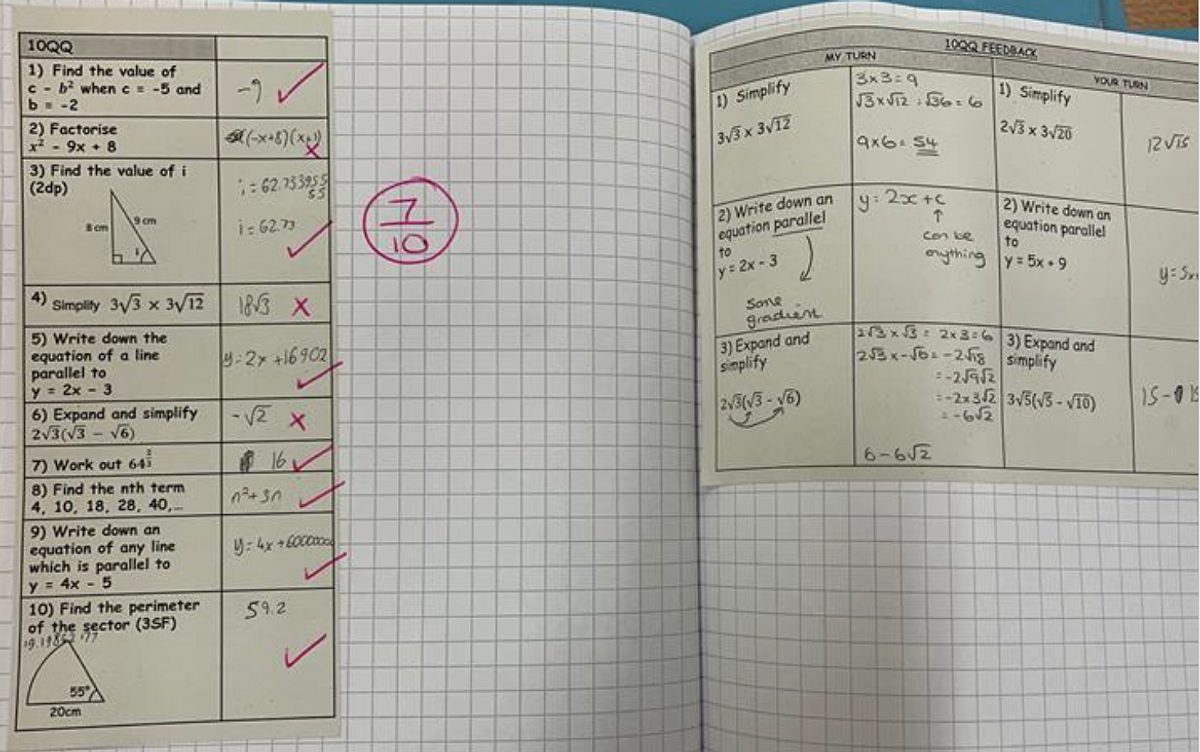 10QQ
1) Find the value of
c - b² when c = -5 and
b = -2
-9
2) Factorise
x² - 9x + 8
(-x+8)(x+1)
3) Find the value of i
(2dp)
8 cm
9 cm
i
i = 62.733955
55
i = 62.73
4) Simplify 3√3 × 3√12
18√3
5) Write down the
equation of a line
parallel to
y = 2x - 3
y = 2x + 16902
6) Expand and simplify
2√3(√3 - √6)
-√2
7) Work out 64^(2/3)
16
8) Find the nth term
4, 10, 18, 28, 40,...
n²+3n
9) Write down an
equation of any line
which is parallel to
y = 4x - 5
10) Find the perimeter
of the sector (3SF)
55°
20cm
59.2
7/10
10QQ FEEDBACK
MY TURN
YOUR TURN
1) Simplify
3√3 x 3√12
3×3=9
√3×√12 = √36 = 6
9×6 = 54
1) Simplify
2√3 x 3√20
12√15
2) Write down an
equation parallel
to
y = 2x - 3
Same
gradient
y = 2x + c
↑
can be
anything
2) Write down an
equation parallel
to
y = 5x + 9
3) Expand and
simplify
2√3(√3 - √6)
2√3 × √3 = 2×3=6
2√3 × -√6 = -2√18
= -2√9√2
= -2×3√2
= -6√2
6 - 6√2
3) Expand and
simplify
3√5(√5 - √10)